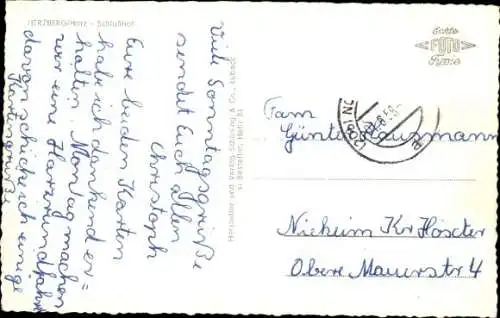 HERZBERG/Harz - Schloßhof
Viele Sonntagsgrüße
sendet Euch allen
Christoph
Eure beiden Karten
habe ich dankend er=
halten. Montag machen
wir eine Harzrundfahrt
davon schicke ich einige
Kartengrüße
Hersteller und Verlag Schöning & Co., Lübeck
Echte
FOTO
Fam
Günter Hausmann
Nieheim Kr Höxter
Obere Mauerstr 4